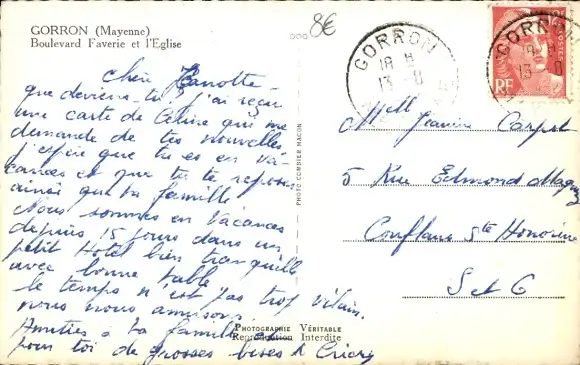 GORRON (Mayenne)
Boulevard Faverie et l'Eglise
8€
que deviens-tu j'ai reçu
une carte de Céline qui me
demande de tes nouvelles
j'espère que tu es en va-
cances et que tu te reposes
ainsi que ta famille
Nous sommes en Vacances
depuis 15 jours dans un
petit Hôtel bien tranquille
avec bonne table
le temps n'est pas trop vilain.
nous nous amusons.
Amitiés à ta famille et
pour toi de grosses bises
PHOTOGRAPHIE VÉRITABLE
Reproduction Interdite
PHOTO COMBIER MACON
GORRON
18 H
13 - 8
GORRON
18 H
13 - 8
POSTES
RF
Melle Jeanine Carpet
5 Rue Edmond
Conflans Ste Honorine
S et O